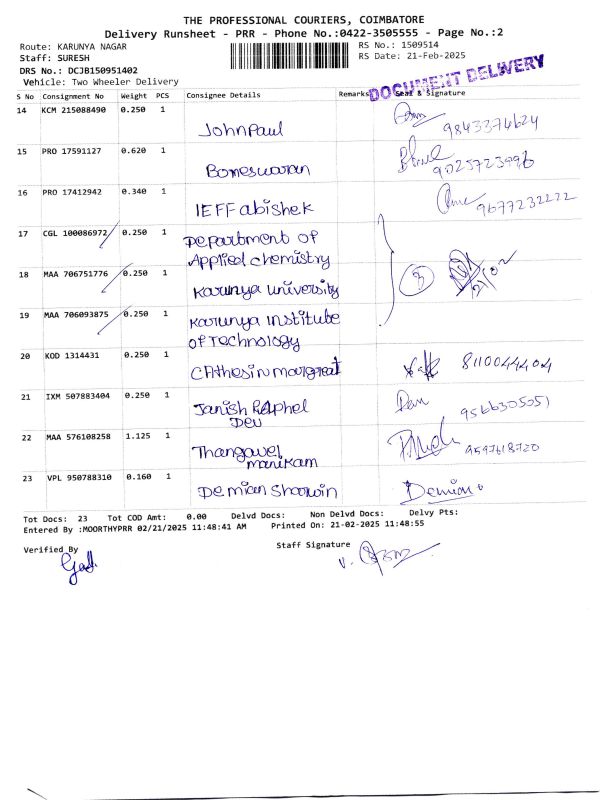 THE PROFESSIONAL COURIERS, COIMBATORE
Delivery Runsheet - PRR - Phone No.:0422-3505555 - Page No.:2
Route: KARUNYA NAGAR RS No.: 1509514
Staff: SURESH RS Date: 21-Feb-2025
DRS No.: DCJB150951402
Vehicle: Two Wheeler Delivery
DOCUMENT DELIVERY
S No Consignment No Weight PCS Consignee Details Remarks Seal & Signature
14 KCM 215088490 0.250 1 John Paul 9843374624
15 PRO 17591127 0.620 1 Bomeswaran 9025723996
16 PRO 17412942 0.340 1 IEFF abishek 9677232222
17 CGL 100086972 0.250 1 Department of
Applied chemistry
18 MAA 706751776 0.250 1 Karunya university 3
19 MAA 706093875 0.250 1 Karunya Institube
of Technology
20 KOD 1314431 0.250 1 8110044404
21 IXM 507883404 0.250 1 Janish Raphel 9566305051
Dev
22 MAA 576108258 1.125 1 Thangavel 9597618720
manikam
23 VPL 950788310 0.160 1 Demian Sharwin Demian
Tot Docs: 23 Tot COD Amt: 0.00 Delvd Docs: Non Delvd Docs: Delvy Pts:
Entered By :MOORTHYPRR 02/21/2025 11:48:41 AM Printed On: 21-02-2025 11:48:55
Verified By Staff Signature